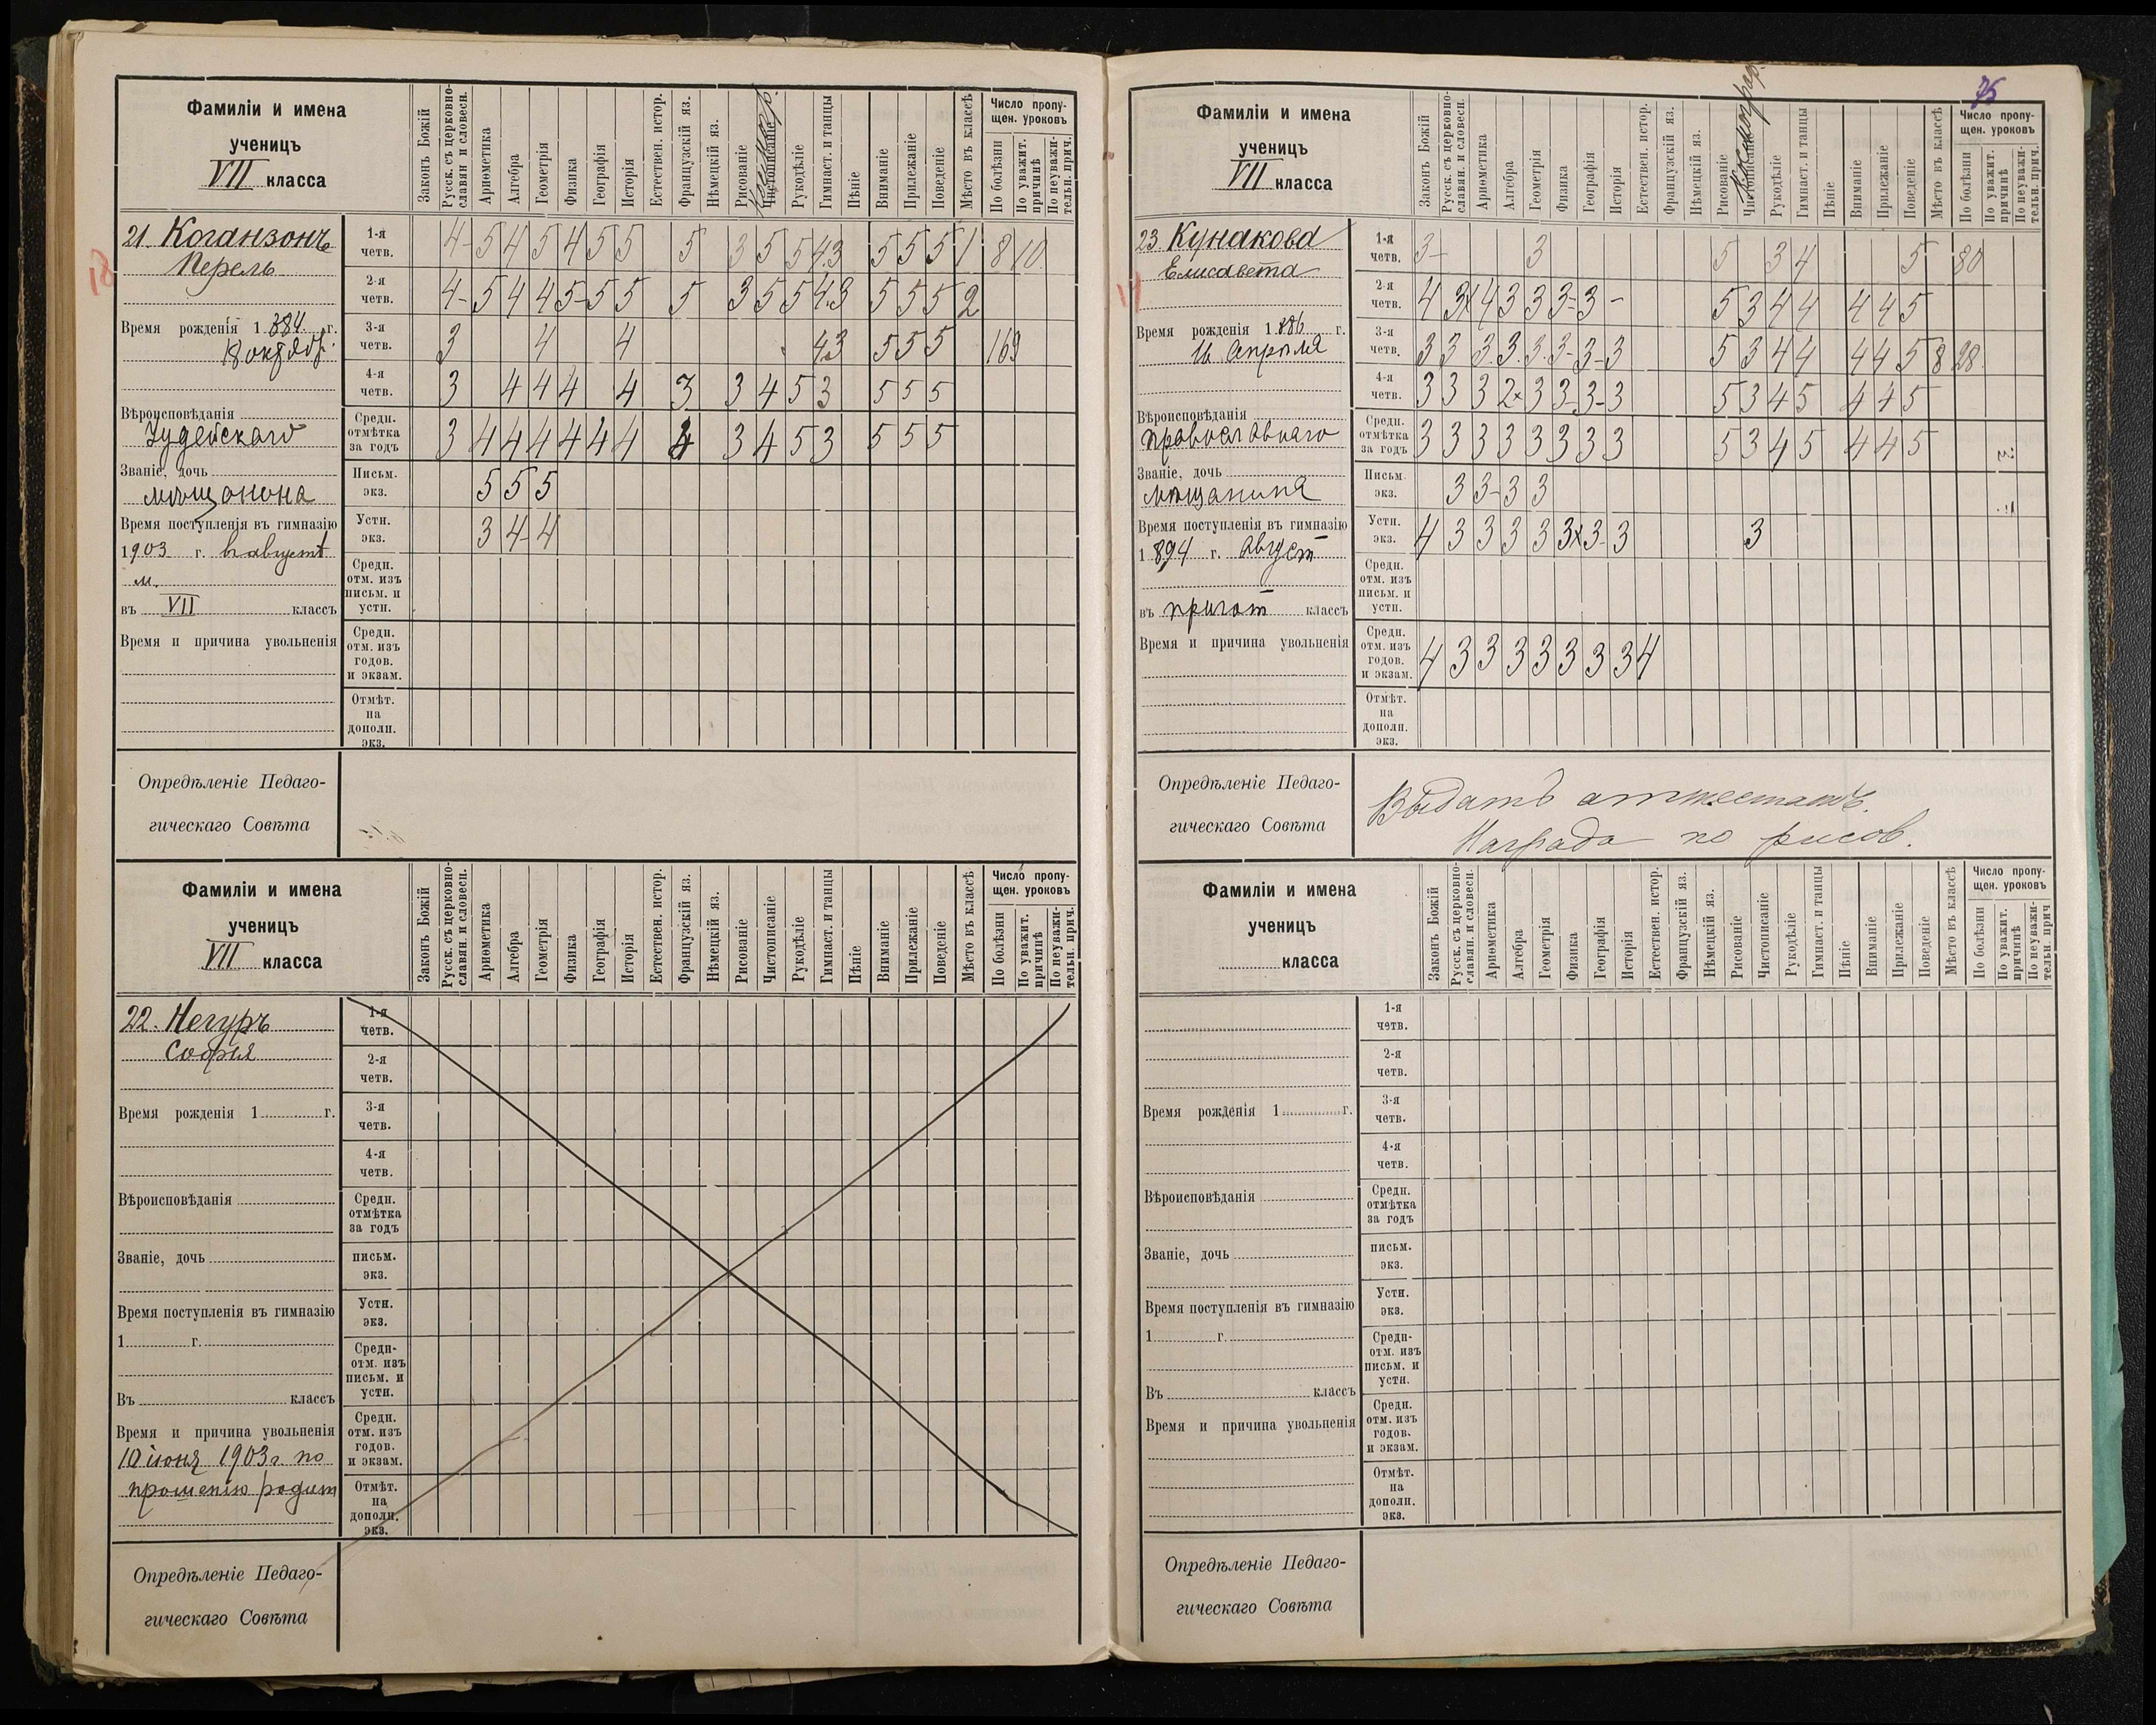 Фамиліи и имена
ученицъ
VII класса
Законъ Божій
Русск. съ церковно-
славян. и словесн.
Ариѳметика
Алгебра
Геометрія
Физика
Географія
Исторія
Естествен. истор.
Французскій яз.
Нѣмецкій яз.
Рисованіе
Чистописаніе
Рукодѣліе
Гимнаст. и танцы
Пѣніе
Вниманіе
Прилежаніе
Поведеніе
Мѣсто въ классѣ
Число пропу-
щен. уроковъ
По болѣзни
По уважит.
причинѣ
По неуважи-
тельн. прич.
21. Коганзонъ
Перель
18
Время рожденія 1884 г.
18 октябр.
Вѣроисповѣданія
Іудейскаго
Званіе, дочь
мѣщанина
Время поступленія въ гимназію
1903 г. въ августѣ
м.
въ VII классъ
Время и причина увольненія
1-я четв. 4- 5 4 5 4 5 5 5 3 5 5 4 3 5 5 5 1 8 10
2-я четв. 4- 5 4 4 5- 5 5 5 3 5 5 4 3 5 5 5 2
3-я четв. 3 4 4 4 3 5 5 5 169
4-я четв. 3 4 4 4 4 3 3 4 5 3 5 5 5
Средн. отмѣтка за годъ 3 4 4 4 4 4 4 4 3 4 5 3 5 5 5
Письм. экз. 5 5 5
Устн. экз. 3 4- 4
Средн. отм. изъ письм. и устн.
Средн. отм. изъ годов. и экзам.
Отмѣт. на дополн. экз.
Опредѣленіе Педаго-
гическаго Совѣта
Фамиліи и имена
ученицъ
VII класса
Законъ Божій
Русск. съ церковно-
славян. и словесн.
Ариѳметика
Алгебра
Геометрія
Физика
Географія
Исторія
Естествен. истор.
Французскій яз.
Нѣмецкій яз.
Рисованіе
Чистописаніе
Рукодѣліе
Гимнаст. и танцы
Пѣніе
Вниманіе
Прилежаніе
Поведеніе
Мѣсто въ классѣ
Число пропу-
щен. уроковъ
По болѣзни
По уважит.
причинѣ
По неуважи-
тельн. прич.
22. Негуръ
Софья
Время рожденія 1 г.
Вѣроисповѣданія
Званіе, дочь
Время поступленія въ гимназію
1 г.
Въ классъ
Время и причина увольненія
10 іюня 1903 г. по
прошенію родит
1-я четв.
2-я четв.
3-я четв.
4-я четв.
Средн. отмѣтка за годъ
письм. экз.
Устн. экз.
Средн- отм. изъ письм. и устн.
Средн. отм. изъ годов. и экзам.
Отмѣт. на дополн. экз.
Опредѣленіе Педаго-
гическаго Совѣта
Фамиліи и имена
ученицъ
VII класса
Законъ Божій
Русск. съ церковно-
славян. и словесн.
Ариѳметика
Алгебра
Геометрія
Физика
Географія
Исторія
Естествен. истор.
Французскій яз.
Нѣмецкій яз.
Рисованіе
Чистописаніе
Рукодѣліе
Гимнаст. и танцы
Пѣніе
Вниманіе
Прилежаніе
Поведеніе
Мѣсто въ классѣ
Число пропу-
щен. уроковъ
По болѣзни
По уважит.
причинѣ
По неуважи-
тельн. прич.
23. Кунакова
Елисавета
Время рожденія 1886 г.
Апрѣля
Вѣроисповѣданія
православнаго
Званіе, дочь
мѣщанина
Время поступленія въ гимназію
1894 г. август
въ пригот классъ
Время и причина увольненія
1-я четв. 3- 3 5 3 4 5 80
2-я четв. 4 3 4 3 3 3- 3 - 5 3 4 4 4 4 5
3-я четв. 3 3 3 3 3 3- 3- 3 5 3 4 4 4 4 5 8 28
4-я четв. 3 3 3 2 3 3 3- 3 5 3 4 5 4 4 5
Средн. отмѣтка за годъ 3 3 3 3 3 3 3 3 5 3 4 5 4 4 5
Письм. экз. 3 3- 3 3
Устн. экз. 4 3 3 3 3 3 3 3 3
Средн. отм. изъ письм. и устн.
Средн. отм. изъ годов. и экзам. 4 3 3 3 3 3 3 3 4
Отмѣт. на дополн. экз.
Опредѣленіе Педаго-
гическаго Совѣта
Выдать аттестатъ.
Награда по рисов.
Фамиліи и имена
ученицъ
класса
Законъ Божій
Русск. съ церковно-
славян. и словесн.
Ариѳметика
Алгебра
Геометрія
Физика
Географія
Исторія
Естествен. истор.
Французскій яз.
Нѣмецкій яз.
Рисованіе
Чистописаніе
Рукодѣліе
Гимнаст. и танцы
Пѣніе
Вниманіе
Прилежаніе
Поведеніе
Мѣсто въ классѣ
Число пропу-
щен. уроковъ
По болѣзни
По уважит.
причинѣ
По неуважи-
тельн. прич
Время рожденія 1 г.
Вѣроисповѣданія
Званіе, дочь
Время поступленія въ гимназію
1 г.
Въ классъ
Время и причина увольненія
1-я четв.
2-я четв.
3-я четв.
4-я четв.
Средн. отмѣтка за годъ
письм. экз.
Устн. экз.
Средн- отм. изъ письм. и устн.
Средн. отм. изъ годов. и экзам.
Отмѣт. на дополн. экз.
Опредѣленіе Педаго-
гическаго Совѣта